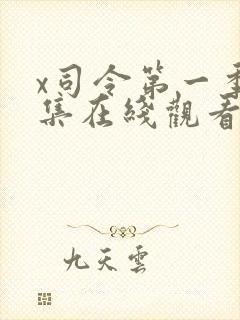 x司令第一季
集在綫觀看
九天雲